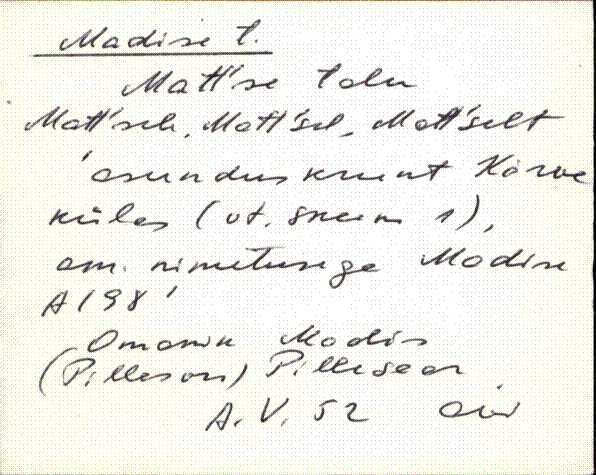 Madise t.
Matt'se talu
Matt'sele, Matt'sel, Matt'selt
'asunduskrunt Kõrve
külas (vt. skeem 1),
am. nimetusega Madise
A 198'
Omanik Madis
(Pilleson) Pillesaar
A. V. 52